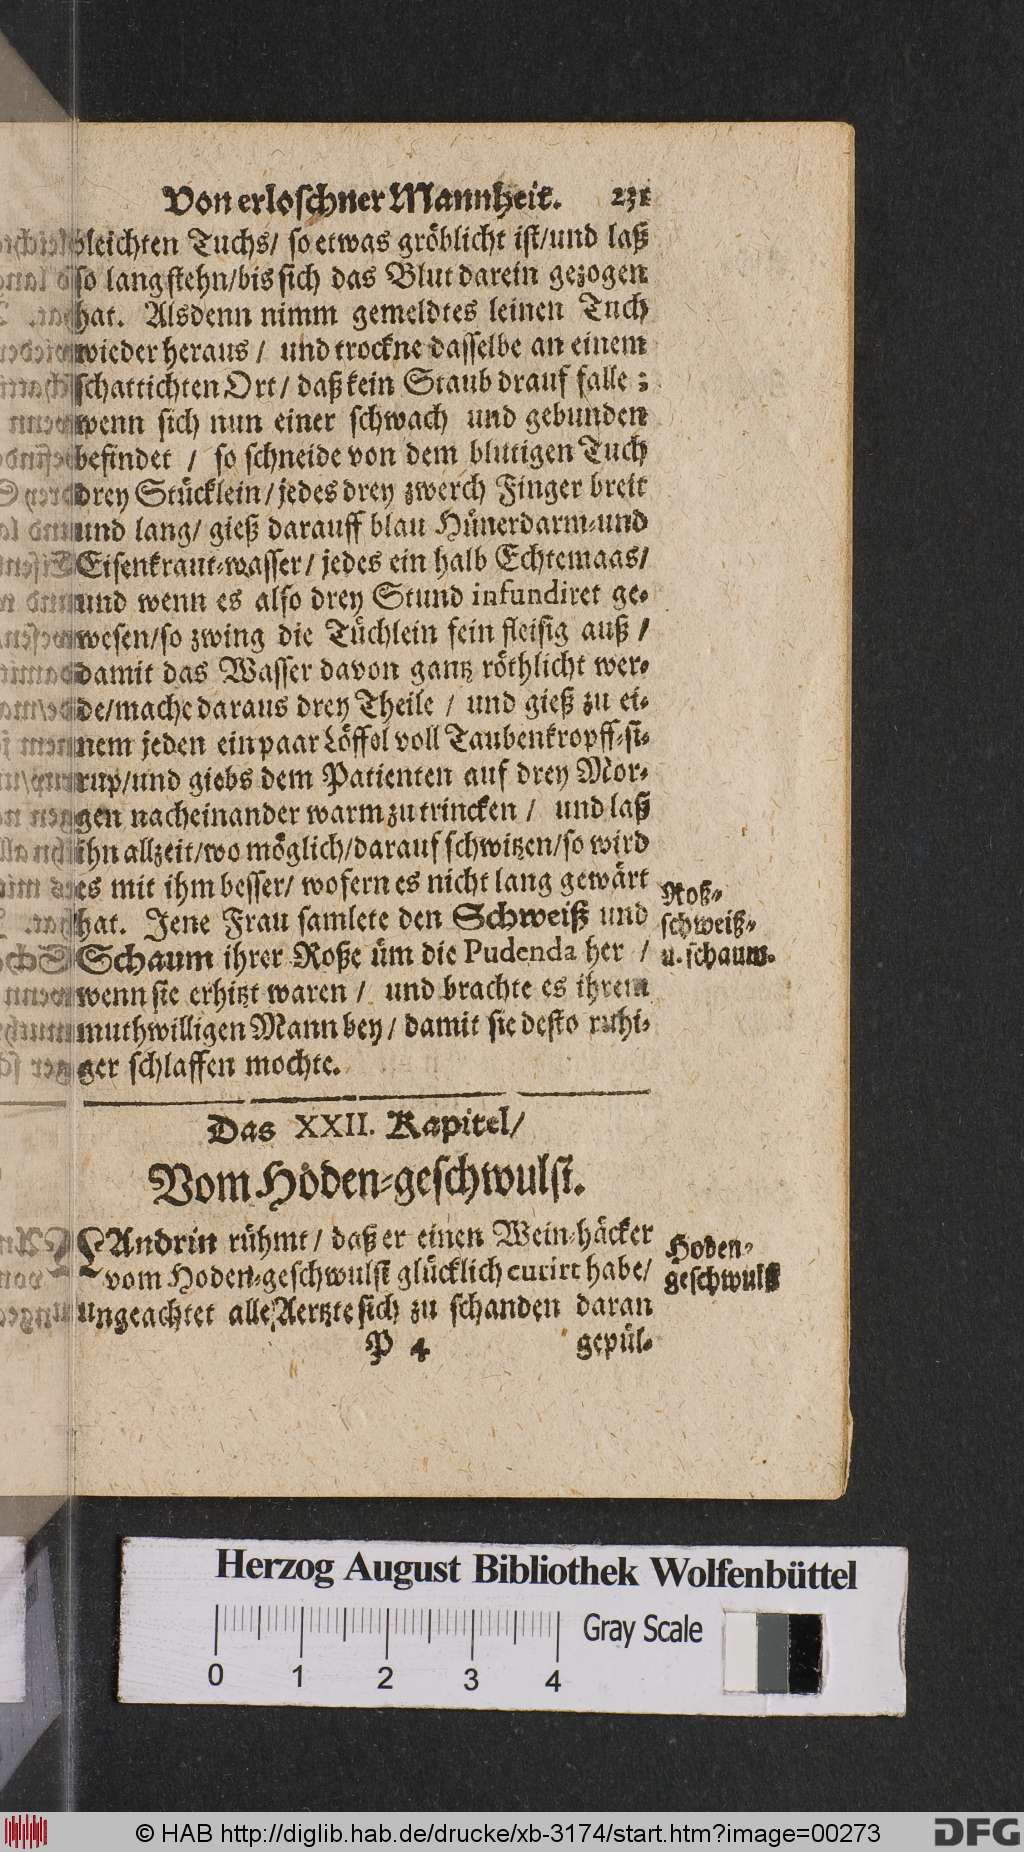 Von erloschner Mannheit. 231
bleichten Tuchs/ so etwas gröblicht ist/und laß
so lang stehn/bis sich das Blut darein gezogen
hat. Alsdenn nimm gemeldtes leinen Tuch
wieder heraus / und trockne dasselbe an einem
schattichten Ort/ daß kein Staub drauf falle ;
wenn sich nun einer schwach und gebunden
befindet / so schneide von dem blutigen Tuch
drey Stücklein/ jedes drey zwerch Finger breit
und lang/ gieß darauff blau Hünerdarm-und
Eisenkraut-wasser/ jedes ein halb Echtemaas/
und wenn es also drey Stund infundiret ge-
wesen/so zwing die Tüchlein fein fleisig auß /
damit das Wasser davon gantz röthlicht wer-
de/mache daraus drey Theile / und gieß zu ei-
nem jeden ein paar Löffel voll Taubenkropff-si-
rup/und giebs dem Patienten auf drey Mor-
gen nacheinander warm zu trincken / und laß
ihn allzeit/wo möglich/darauf schwitzen/so wird
es mit ihm besser/ wofern es nicht lang gewärt
hat. Jene Frau samlete den Schweiß und
Schaum ihrer Roße üm die Pudenda her /
wenn sie erhitzt waren / und brachte es ihrem
muthwilligen Mann bey/ damit sie desto ruhi-
ger schlaffen mochte.
Roß-
schweiß-
u. schaum.
Das XXII. Kapitel/
Vom Hoden-geschwulst.
LAndrin rühmt/ daß er einen Wein-häcker
vom Hoden-geschwulst glücklich curirt habe/
ungeachtet alle Aertzte sich zu schanden daran
Hoden-
geschwulst
P 4 gepül-
Herzog August Bibliothek Wolfenbüttel
Gray Scale
0 1 2 3 4
© HAB http://diglib.hab.de/drucke/xb-3174/start.htm?image=00273
DFG